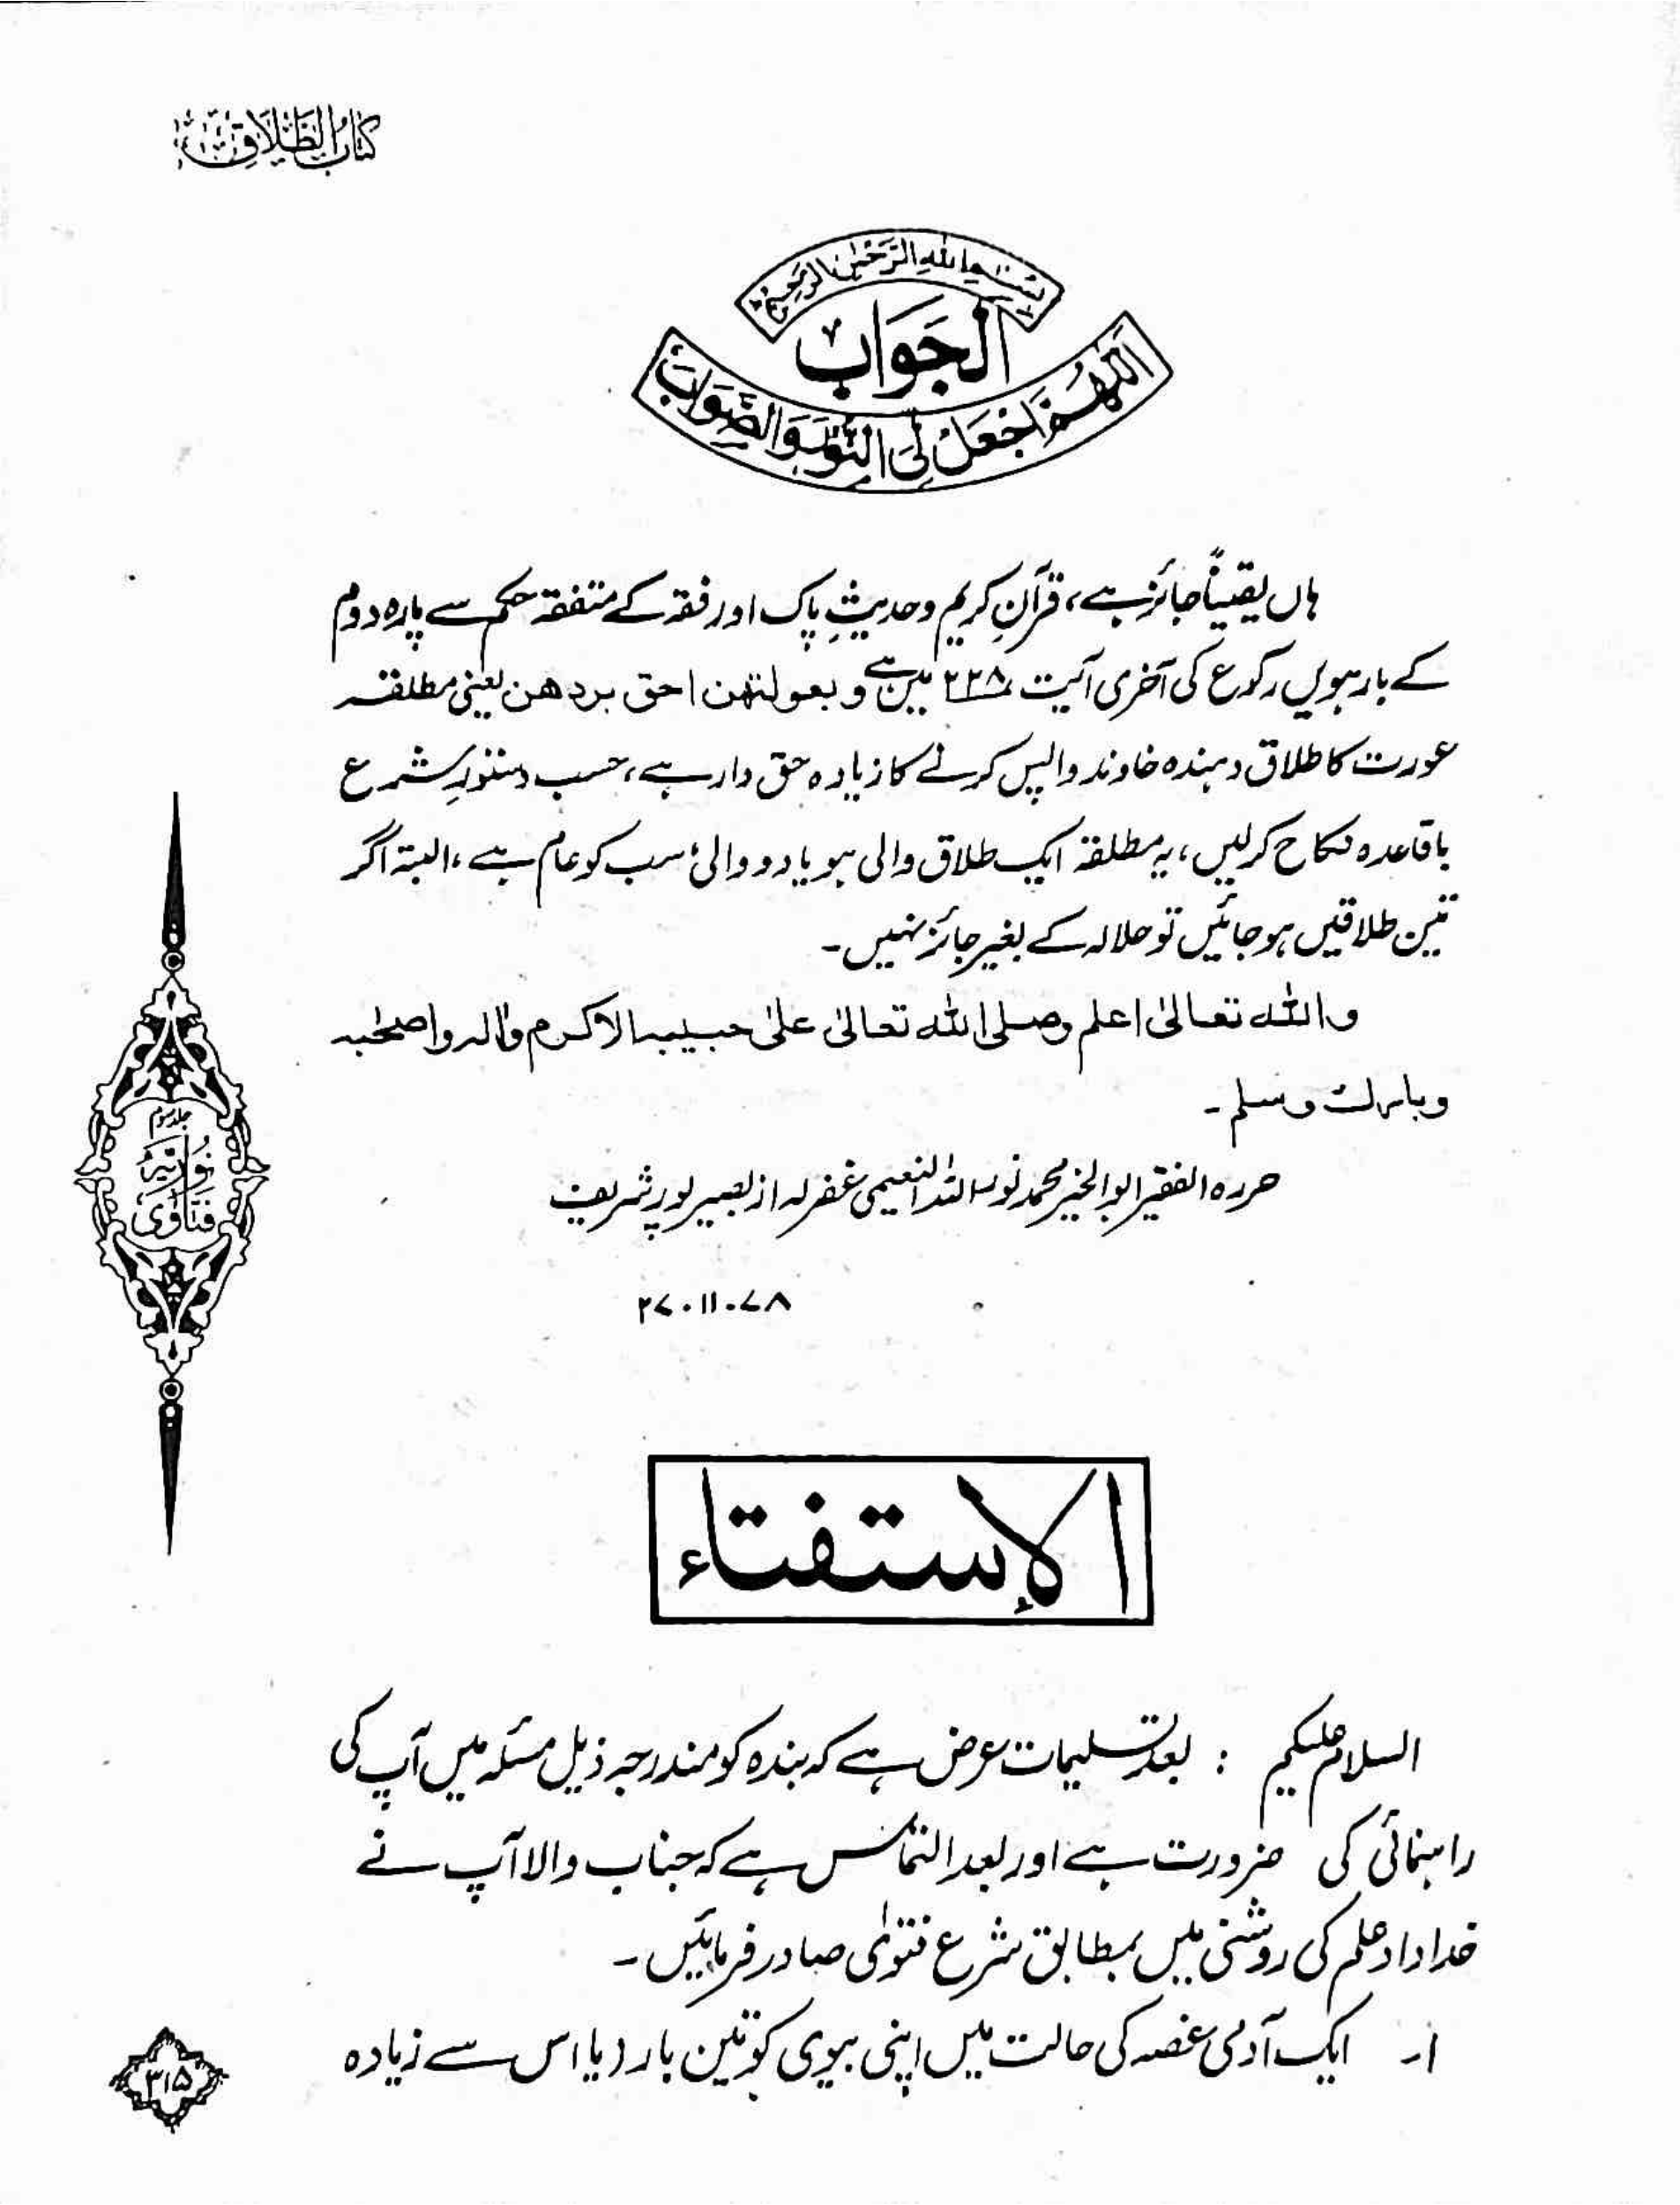 كتاب الطلاق
بسم الله الرحمن الرحيم
الجواب
اللهم اجعل لي النور والصواب
ہاں یقیناً جائز ہے، قرآنِ کریم و حدیثِ پاک اور فقہ کے متفقہ حکم سے پارہ دوم
کے بارہویں رکوع کی آخری آیت ۲۲۸ میں ہے و بعولتهن احق بردهن یعنی مطلقہ
عورت کا طلاق دہندہ خاوند واپس کرنے کا زیادہ حق دار ہے، حسب دستورِ شرع
باقاعدہ نکاح کرلیں، یہ مطلقہ ایک طلاق والی ہو یا دو والی، سب کو عام ہے، البتہ اگر
تین طلاقیں ہو جائیں تو حلالہ کے بغیر جائز نہیں۔
والله تعالىٰ اعلم وصلی الله تعالىٰ علىٰ حبيبه الاكرم واٰله واصحٰبه
وبارك وسلم۔
حررہ الفقیر ابو الخیر محمد نور اللہ النعیمی غفرلہ از بصیر پور شریف
۲۷.۱۱.۷۸
جلد سوم
نوریہ
فتاوٰی
الإستفتاء
السلام علیکم : بعد تسلیمات عرض ہے کہ بندہ کو مندرجہ ذیل مسئلہ میں آپ کی
راہنمائی کی ضرورت ہے اور بعد التماس ہے کہ جناب والا آپ نے
خداداد علم کی روشنی میں بمطابق شرع فتوٰی صادر فرمائیں۔
۱۔ ایک آدمی غصہ کی حالت میں اپنی بیوی کو تین بار (یا اس سے زیادہ
۳۱۵